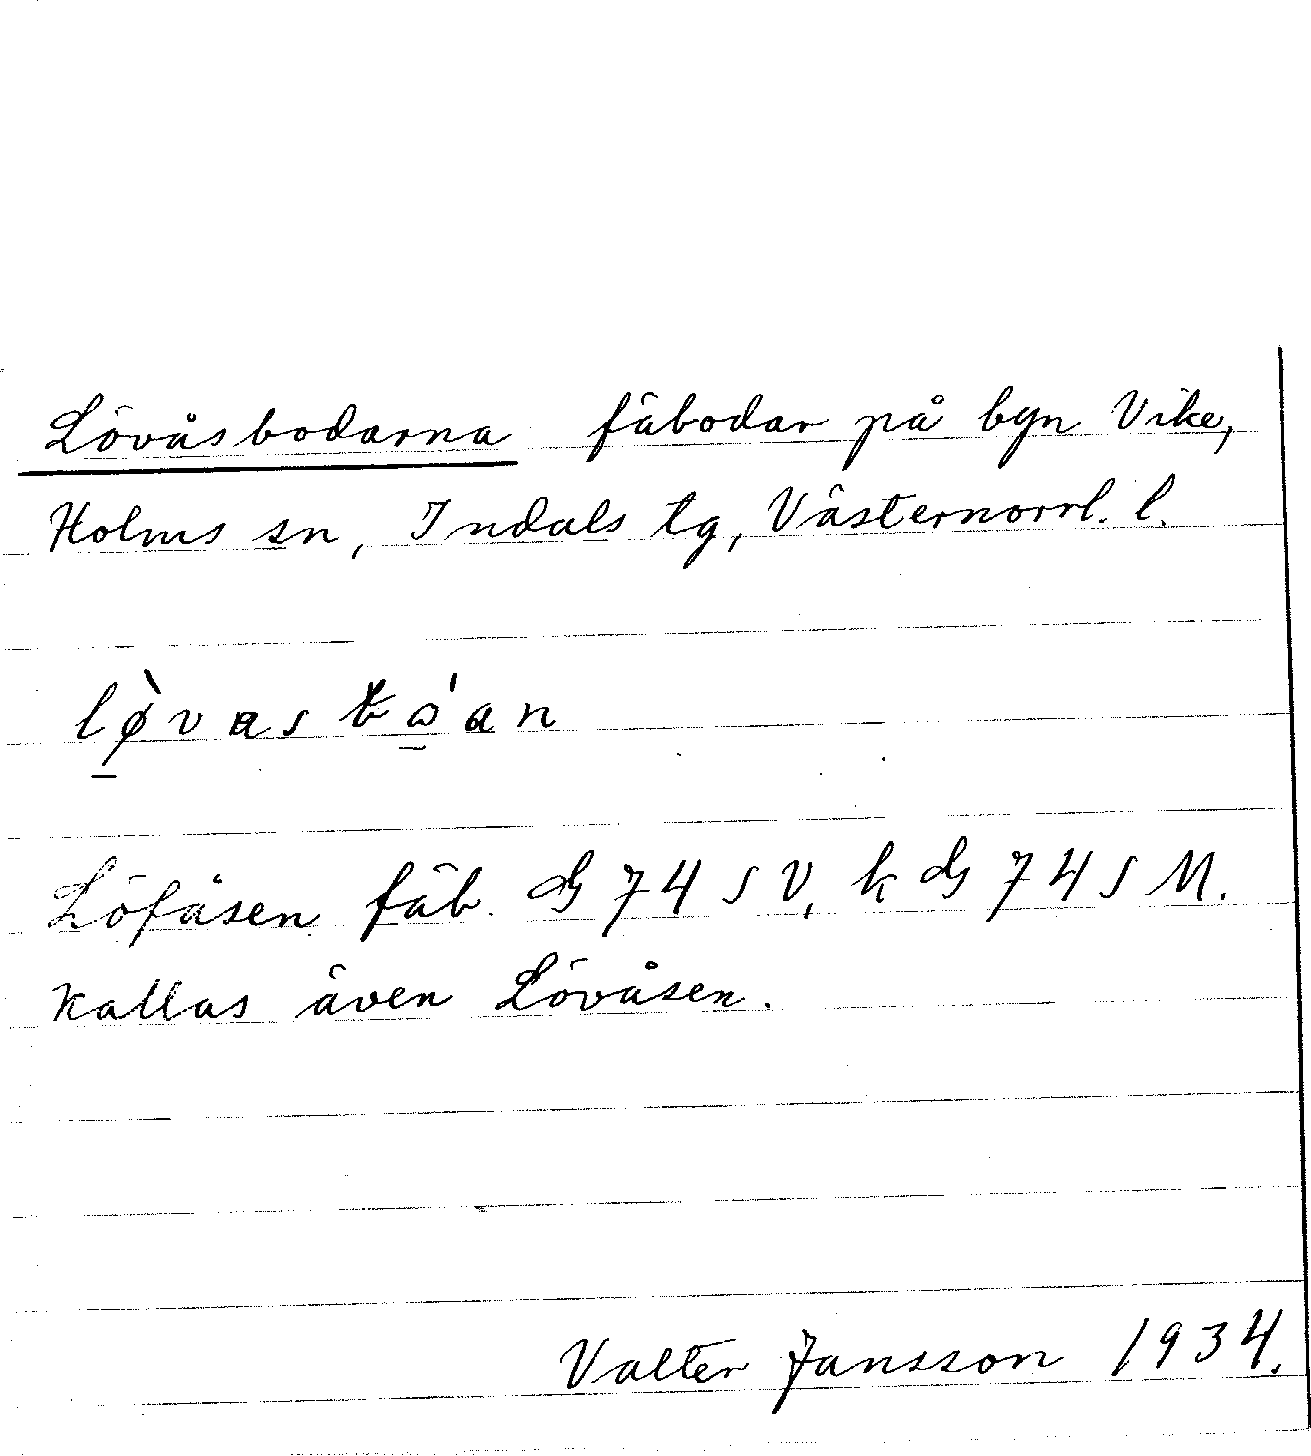 Lövåsbodarna fäbodar på byn Vike,
Holms sn, Indals tg, Västernorrl. l.
Löfåsen fäb. G 74 SV, k G 74 S M.
Kallas även Lövåsen.
Valter Jansson 1934.